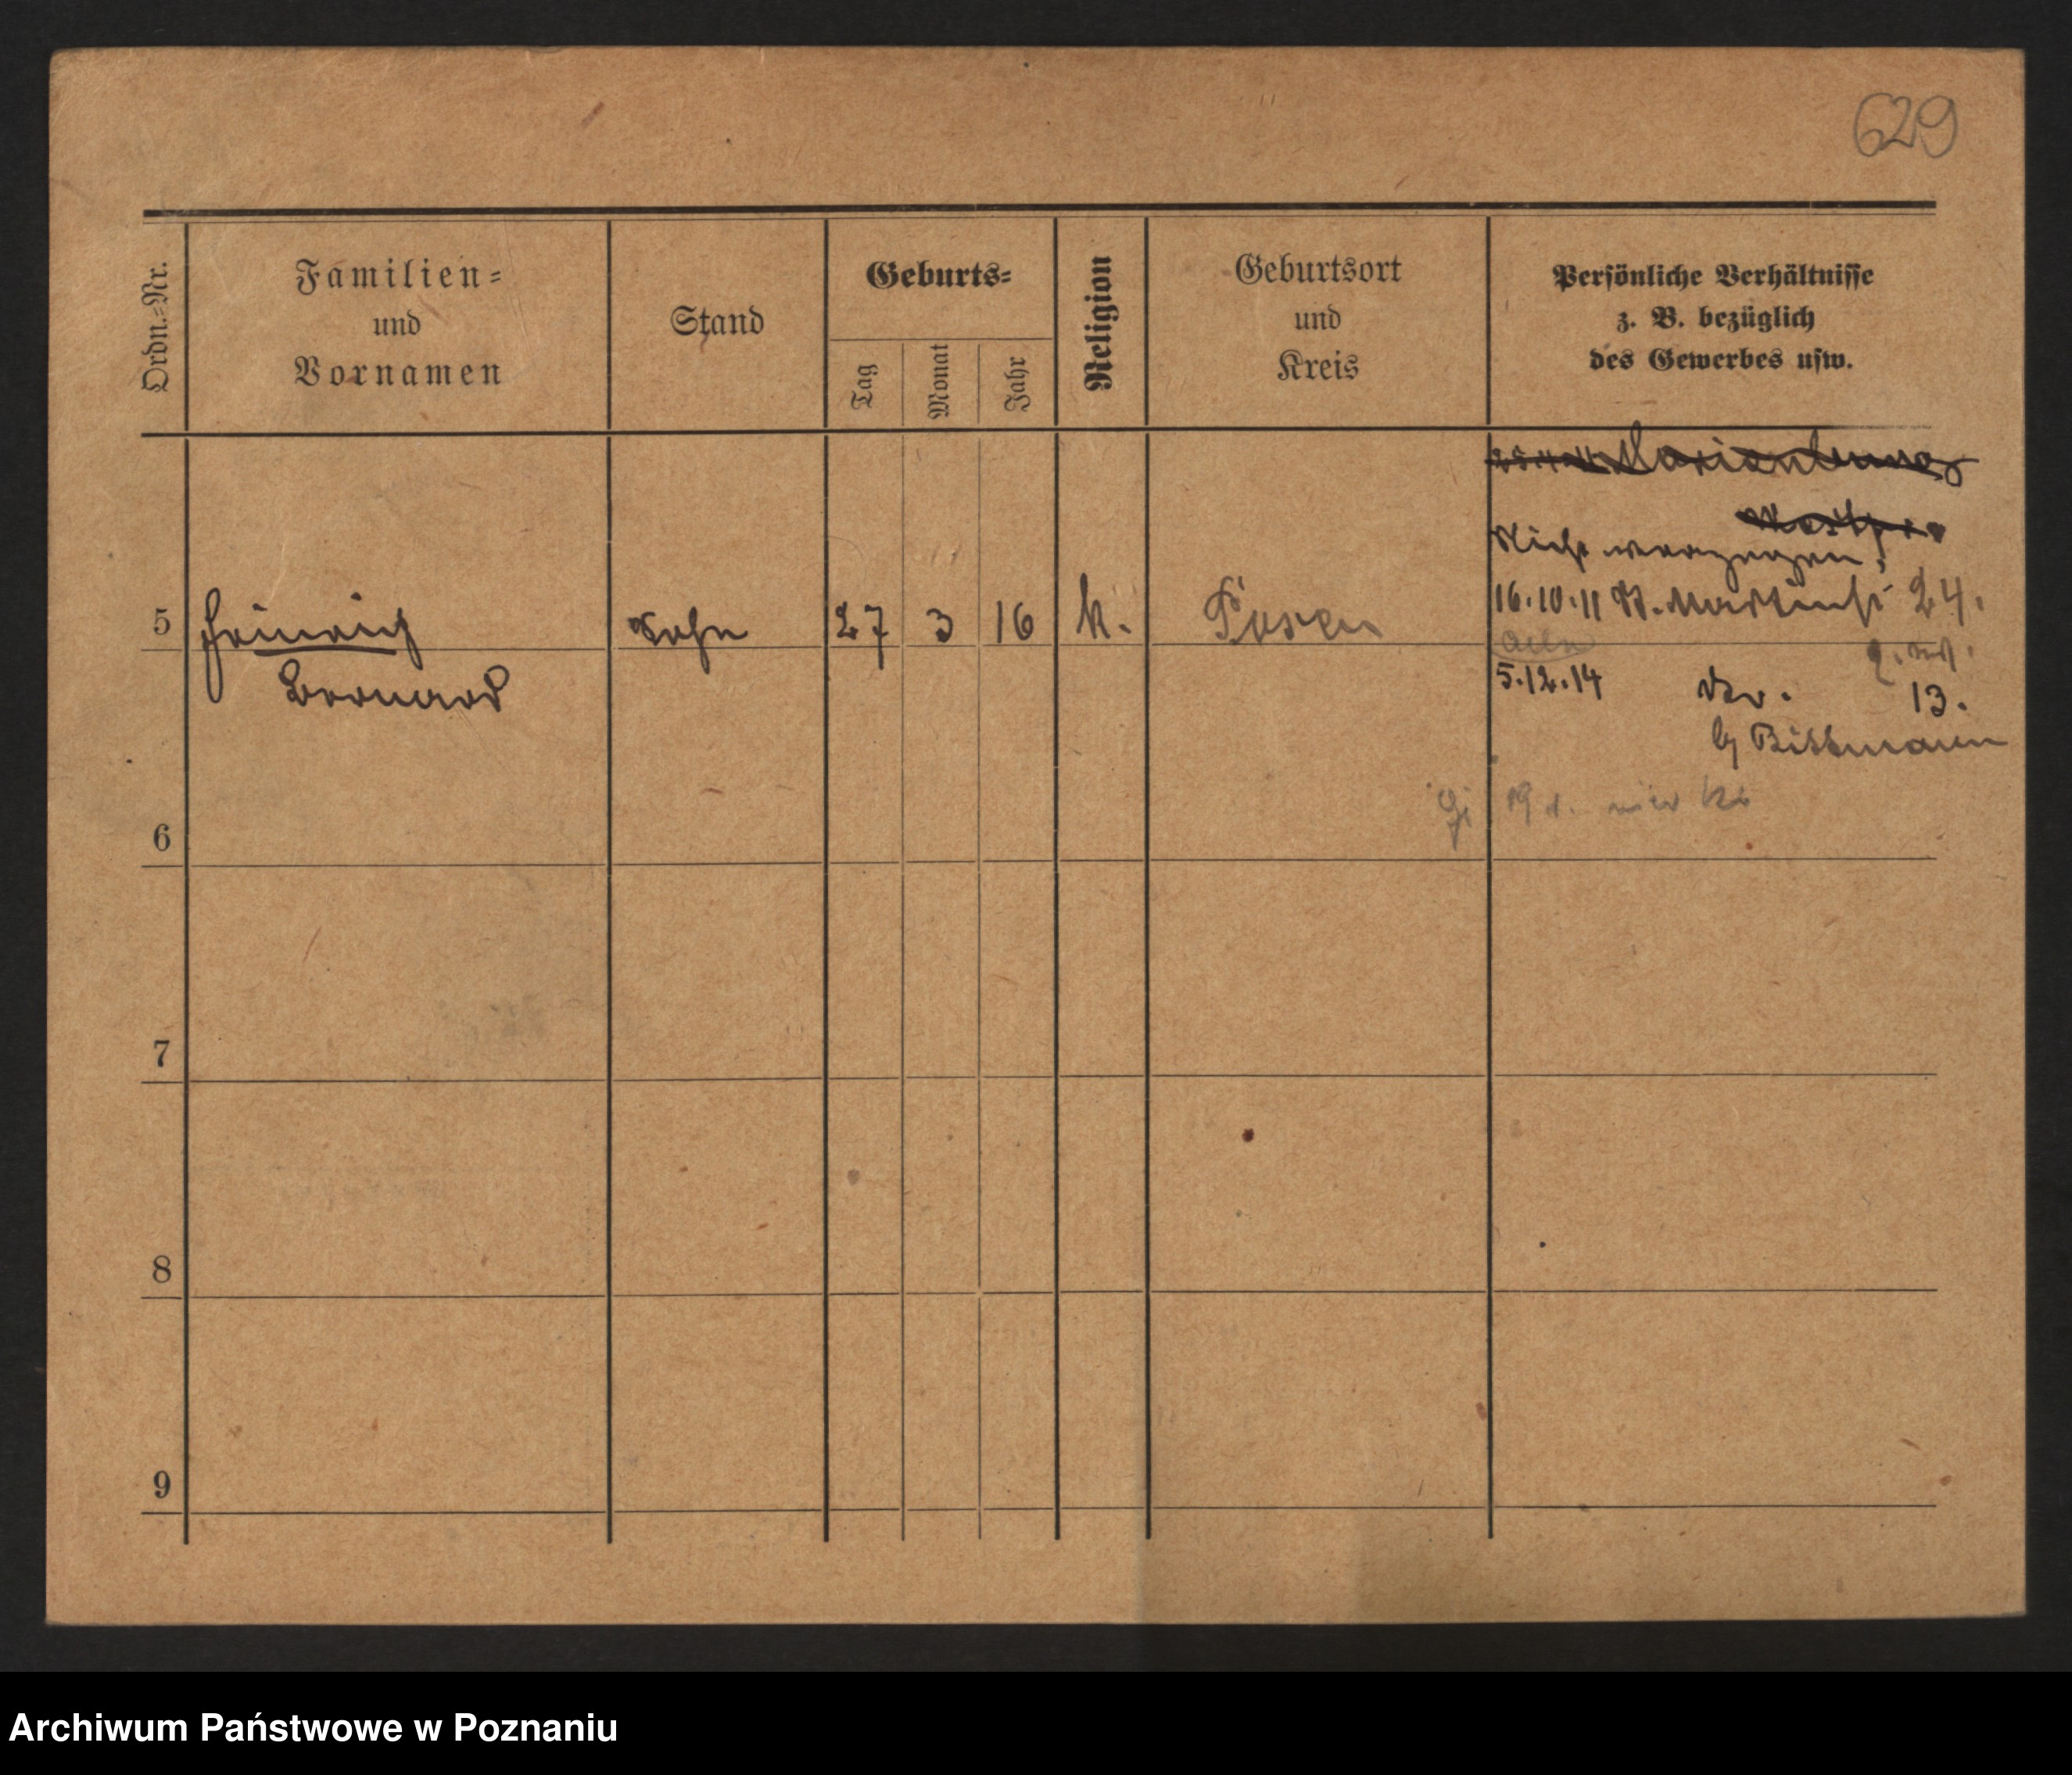 629
Ordn.-Nr.
Familien-
und
Vornamen
Stand
Geburts-
Tag
Monat
Jahr
Religion
Geburtsort
und
Kreis
Persönliche Verhältnisse
z. B. bezüglich
des Gewerbes usw.
Marienburg
Westpr.
Nicht verzogen.
16.10.11 St. Martinstr 24.
5 Heinrich Sohn 27 3 16 k. Posen
Bernard
5.12.14 13.
Bittmann
6
7
8
9
Archiwum Państwowe w Poznaniu